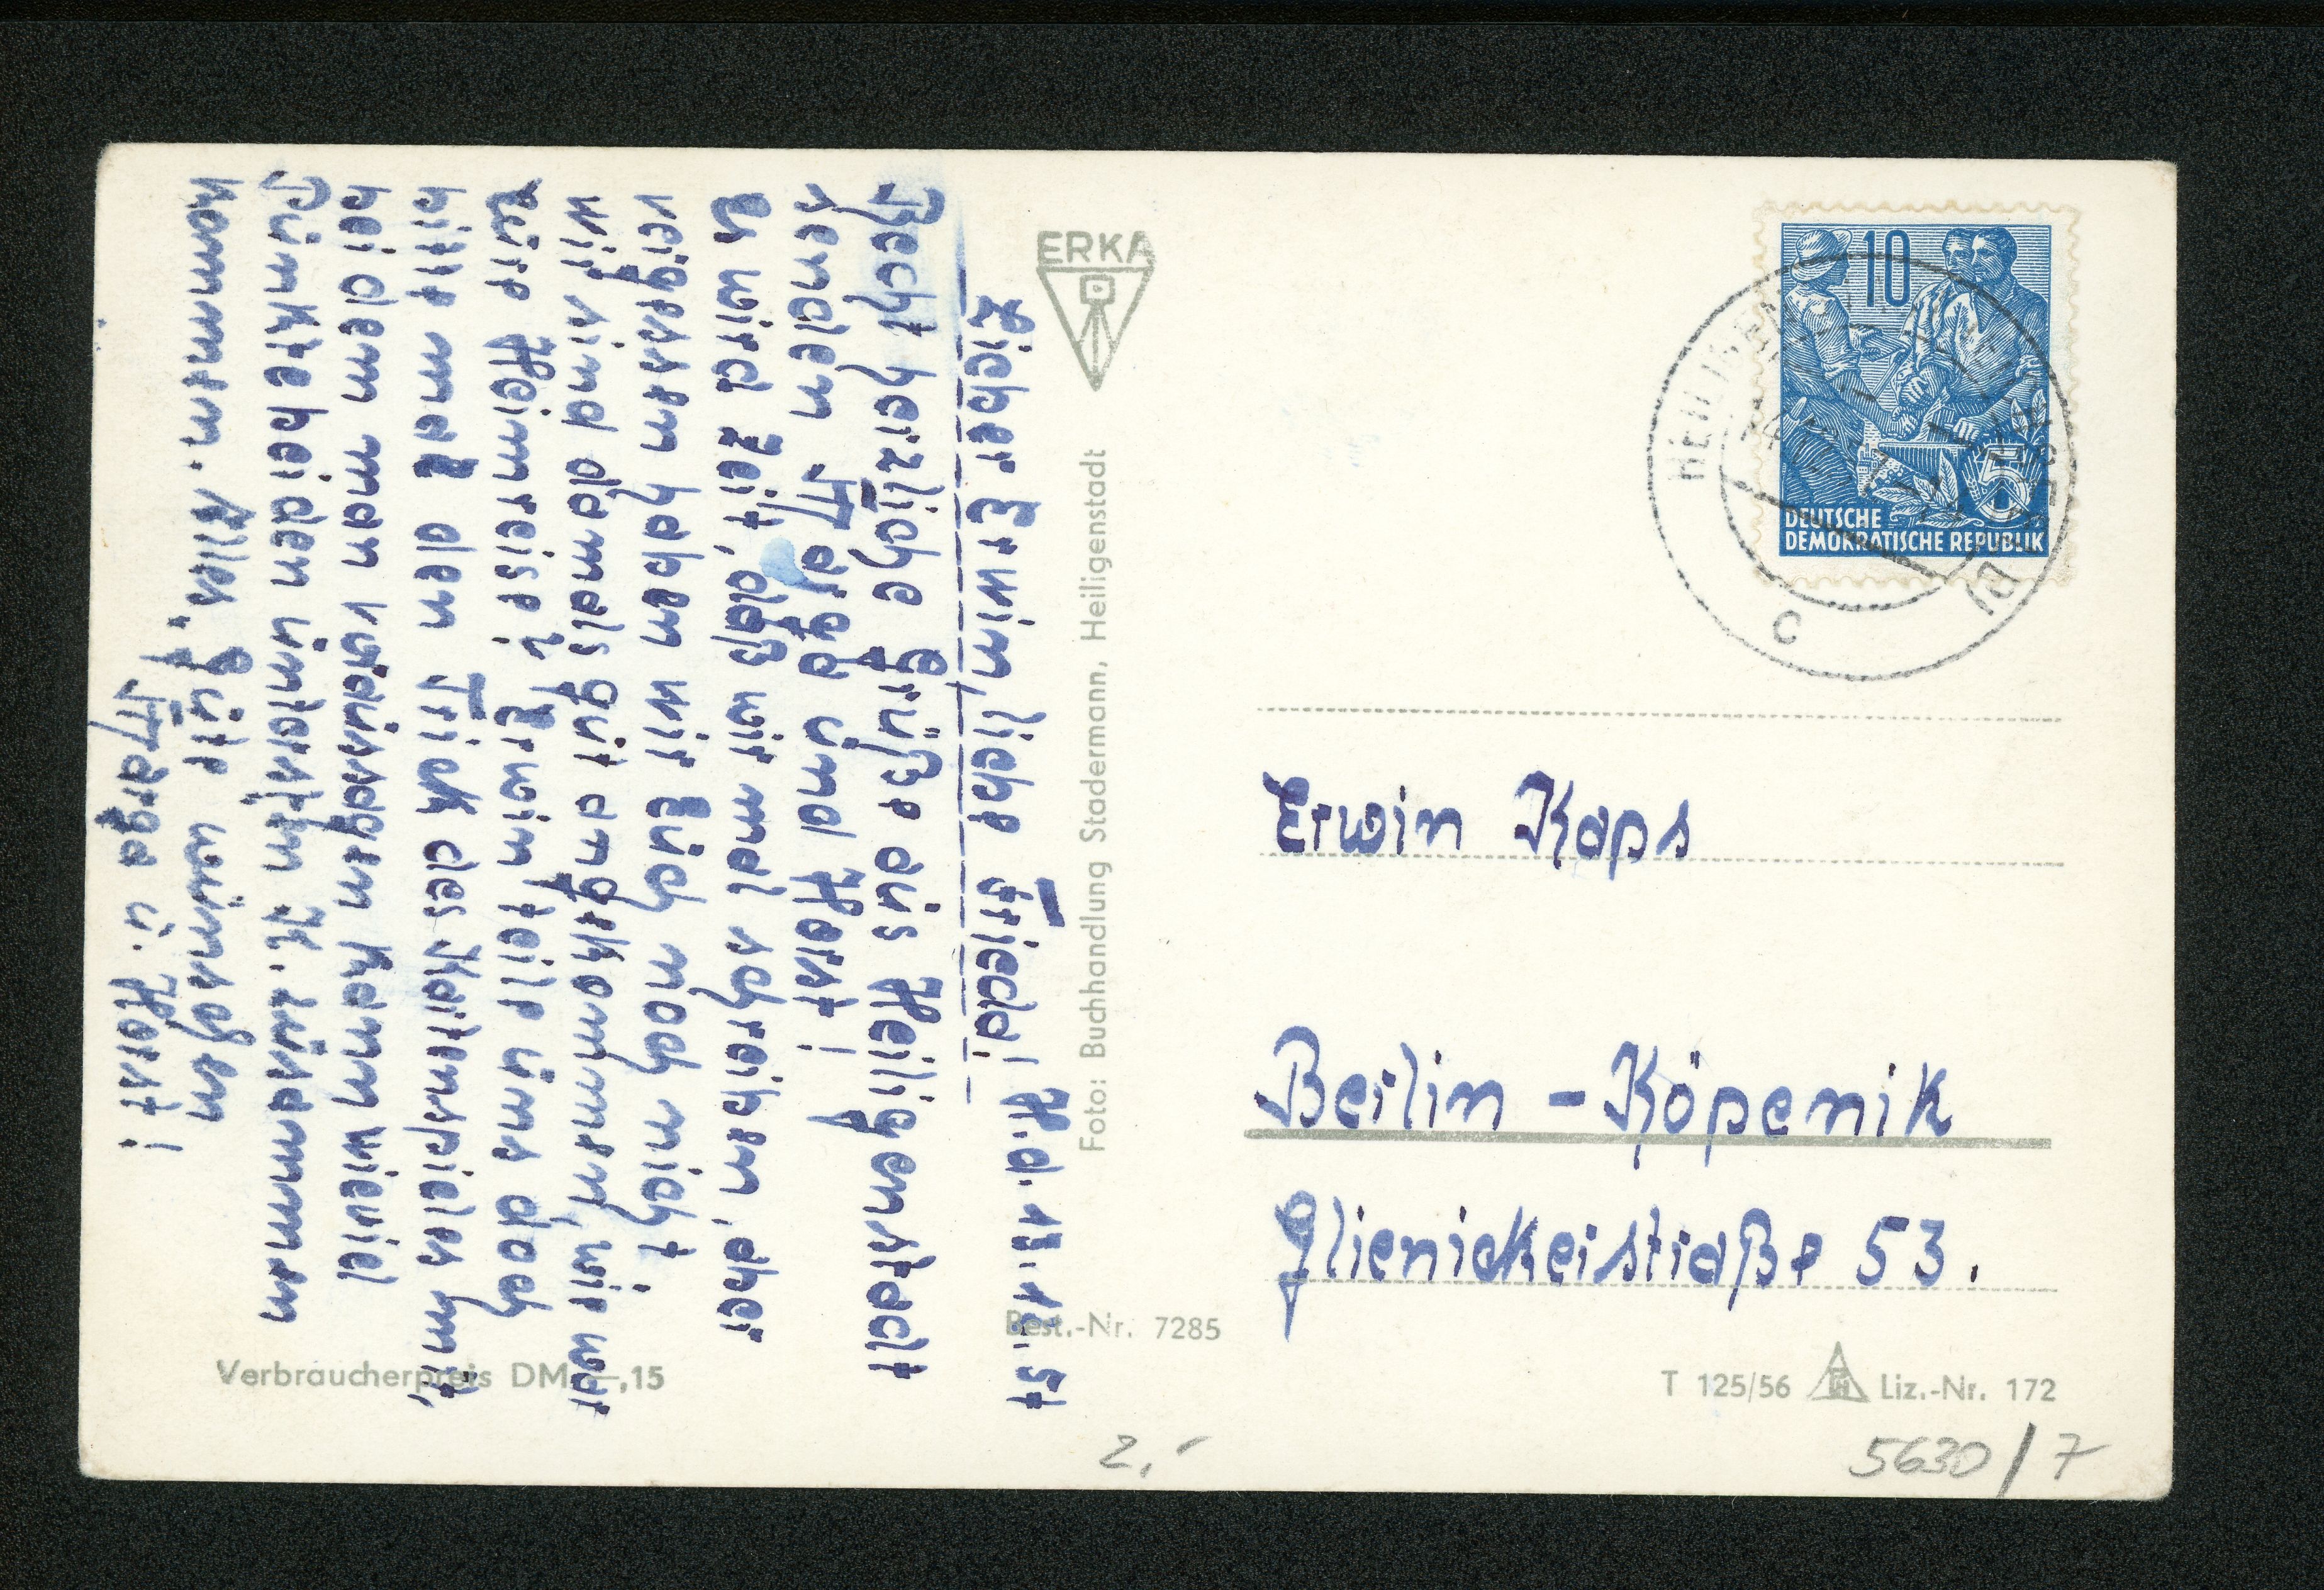 H.d. 13.12.57
Lieber Erwin, liebe Frieda!
Recht herzliche Grüße aus Heiligenstadt
senden Marga und Horst!
Es wird Zeit, daß wir mal schreiben, aber
vergessen haben wir Euch noch nicht.
Wir sind damals gut angekommen, wie war
Eure Heimreise? Erwin teile uns doch
bitte mal den Trick des Kartenspieles mit,
bei dem man voraussagen kann wieviel
Punkte bei den untersten K. zusammen
kommen. Alles Gute wünschen
Marga u. Horst!
ERKA
Foto: Buchhandlung Stadermann, Heiligenstadt
Best.-Nr. 7285
Verbraucherpreis DM —,15
10
DEUTSCHE
DEMOKRATISCHE REPUBLIK
5
c
Erwin Kaps
Berlin - Köpenik
Glienickerstraße 53.
T 125/56 Liz.-Nr. 172
2,-
5630/7